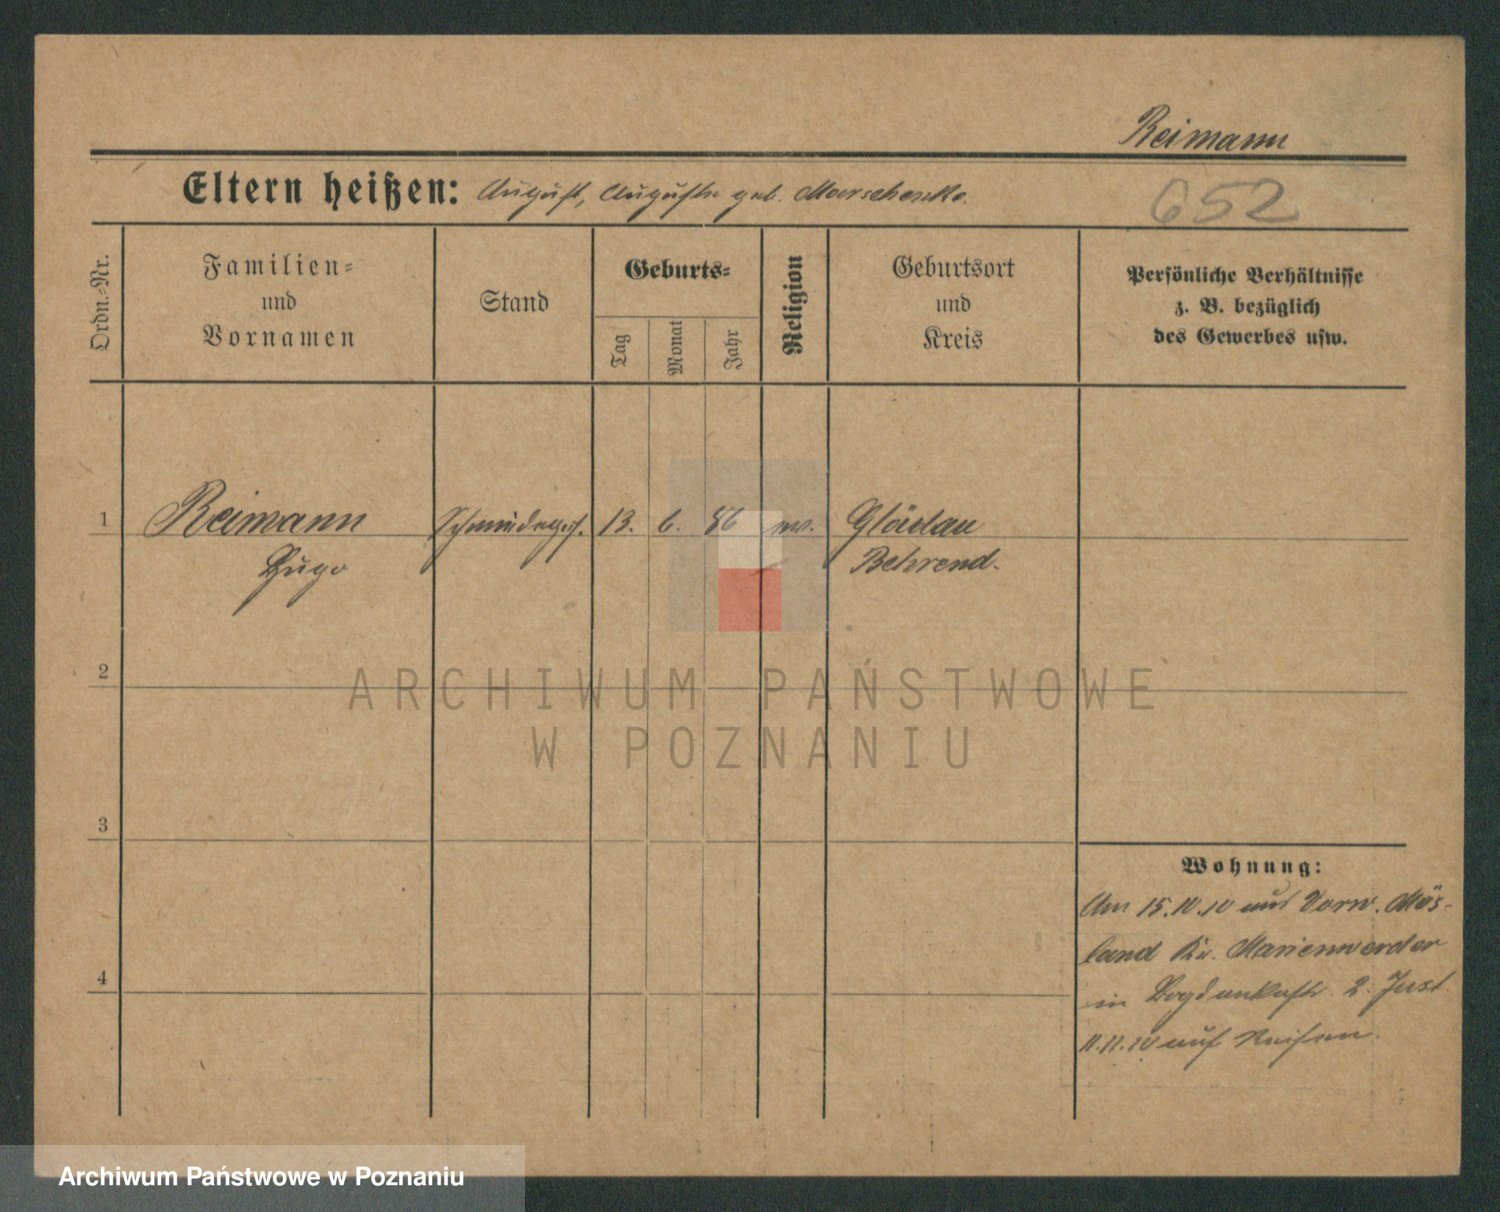 Reimann
Eltern heißen: August, Auguste geb. Marschenke.
652
Ordn.-Nr.
Familien-
und
Vornamen
Stand
Geburts-
Tag
Monat
Jahr
Religion
Geburtsort
und
Kreis
Persönliche Verhältnisse
z. B. bezüglich
des Gewerbes usw.
1 Reimann Schmiedeges. 13. 6. 86 ev.
Hugo Behrend.
2
3
4
Wohnung:
Am 15.10.10 aus Vorw. Mös-
land Kr. Marienwerder
in 2. Just
11.11.10 auf Reisen.
ARCHIWUM PAŃSTWOWE
W POZNANIU
Archiwum Państwowe w Poznaniu